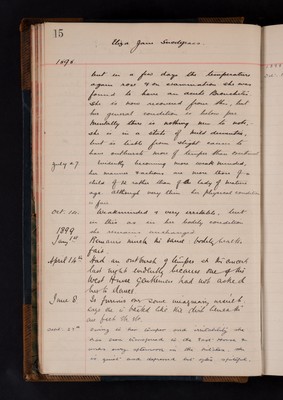 15
Eliza Jane Snodgrass.
1898
but in a few days the temperature
again rose & on examination she was
found to have an acute Bronchitis
She is now recovered from this, but
her general condition is below par.
Mentally there is nothing new to note,
she is in a state of mild dementia,
but is liable from slight causes to
have outbreaks more of temper than
July 27. Evidently becoming more weak minded,
her manner & actions are more those of a
child of 12 rather than of the lady of mature
age although very thin her physical condition
is fair.
Oct. 24. Weakminded & very irritable, but
in this as in her bodily condition
she remains unchanged
1899
Jany 1st Remains much as usual bodily health
fair.
April 14th Had an outburst of temper at the
last night evidently because one of the
West House Gentlemen had not asked
her to dance.
June 8. Is furious over some imaginary
says she is
our feet &c &c.
Sept. 27th Owing to her temper and irritability she
has been transferred to the East House &
works every afternoon in the
is quiet and depressed but often spiteful.